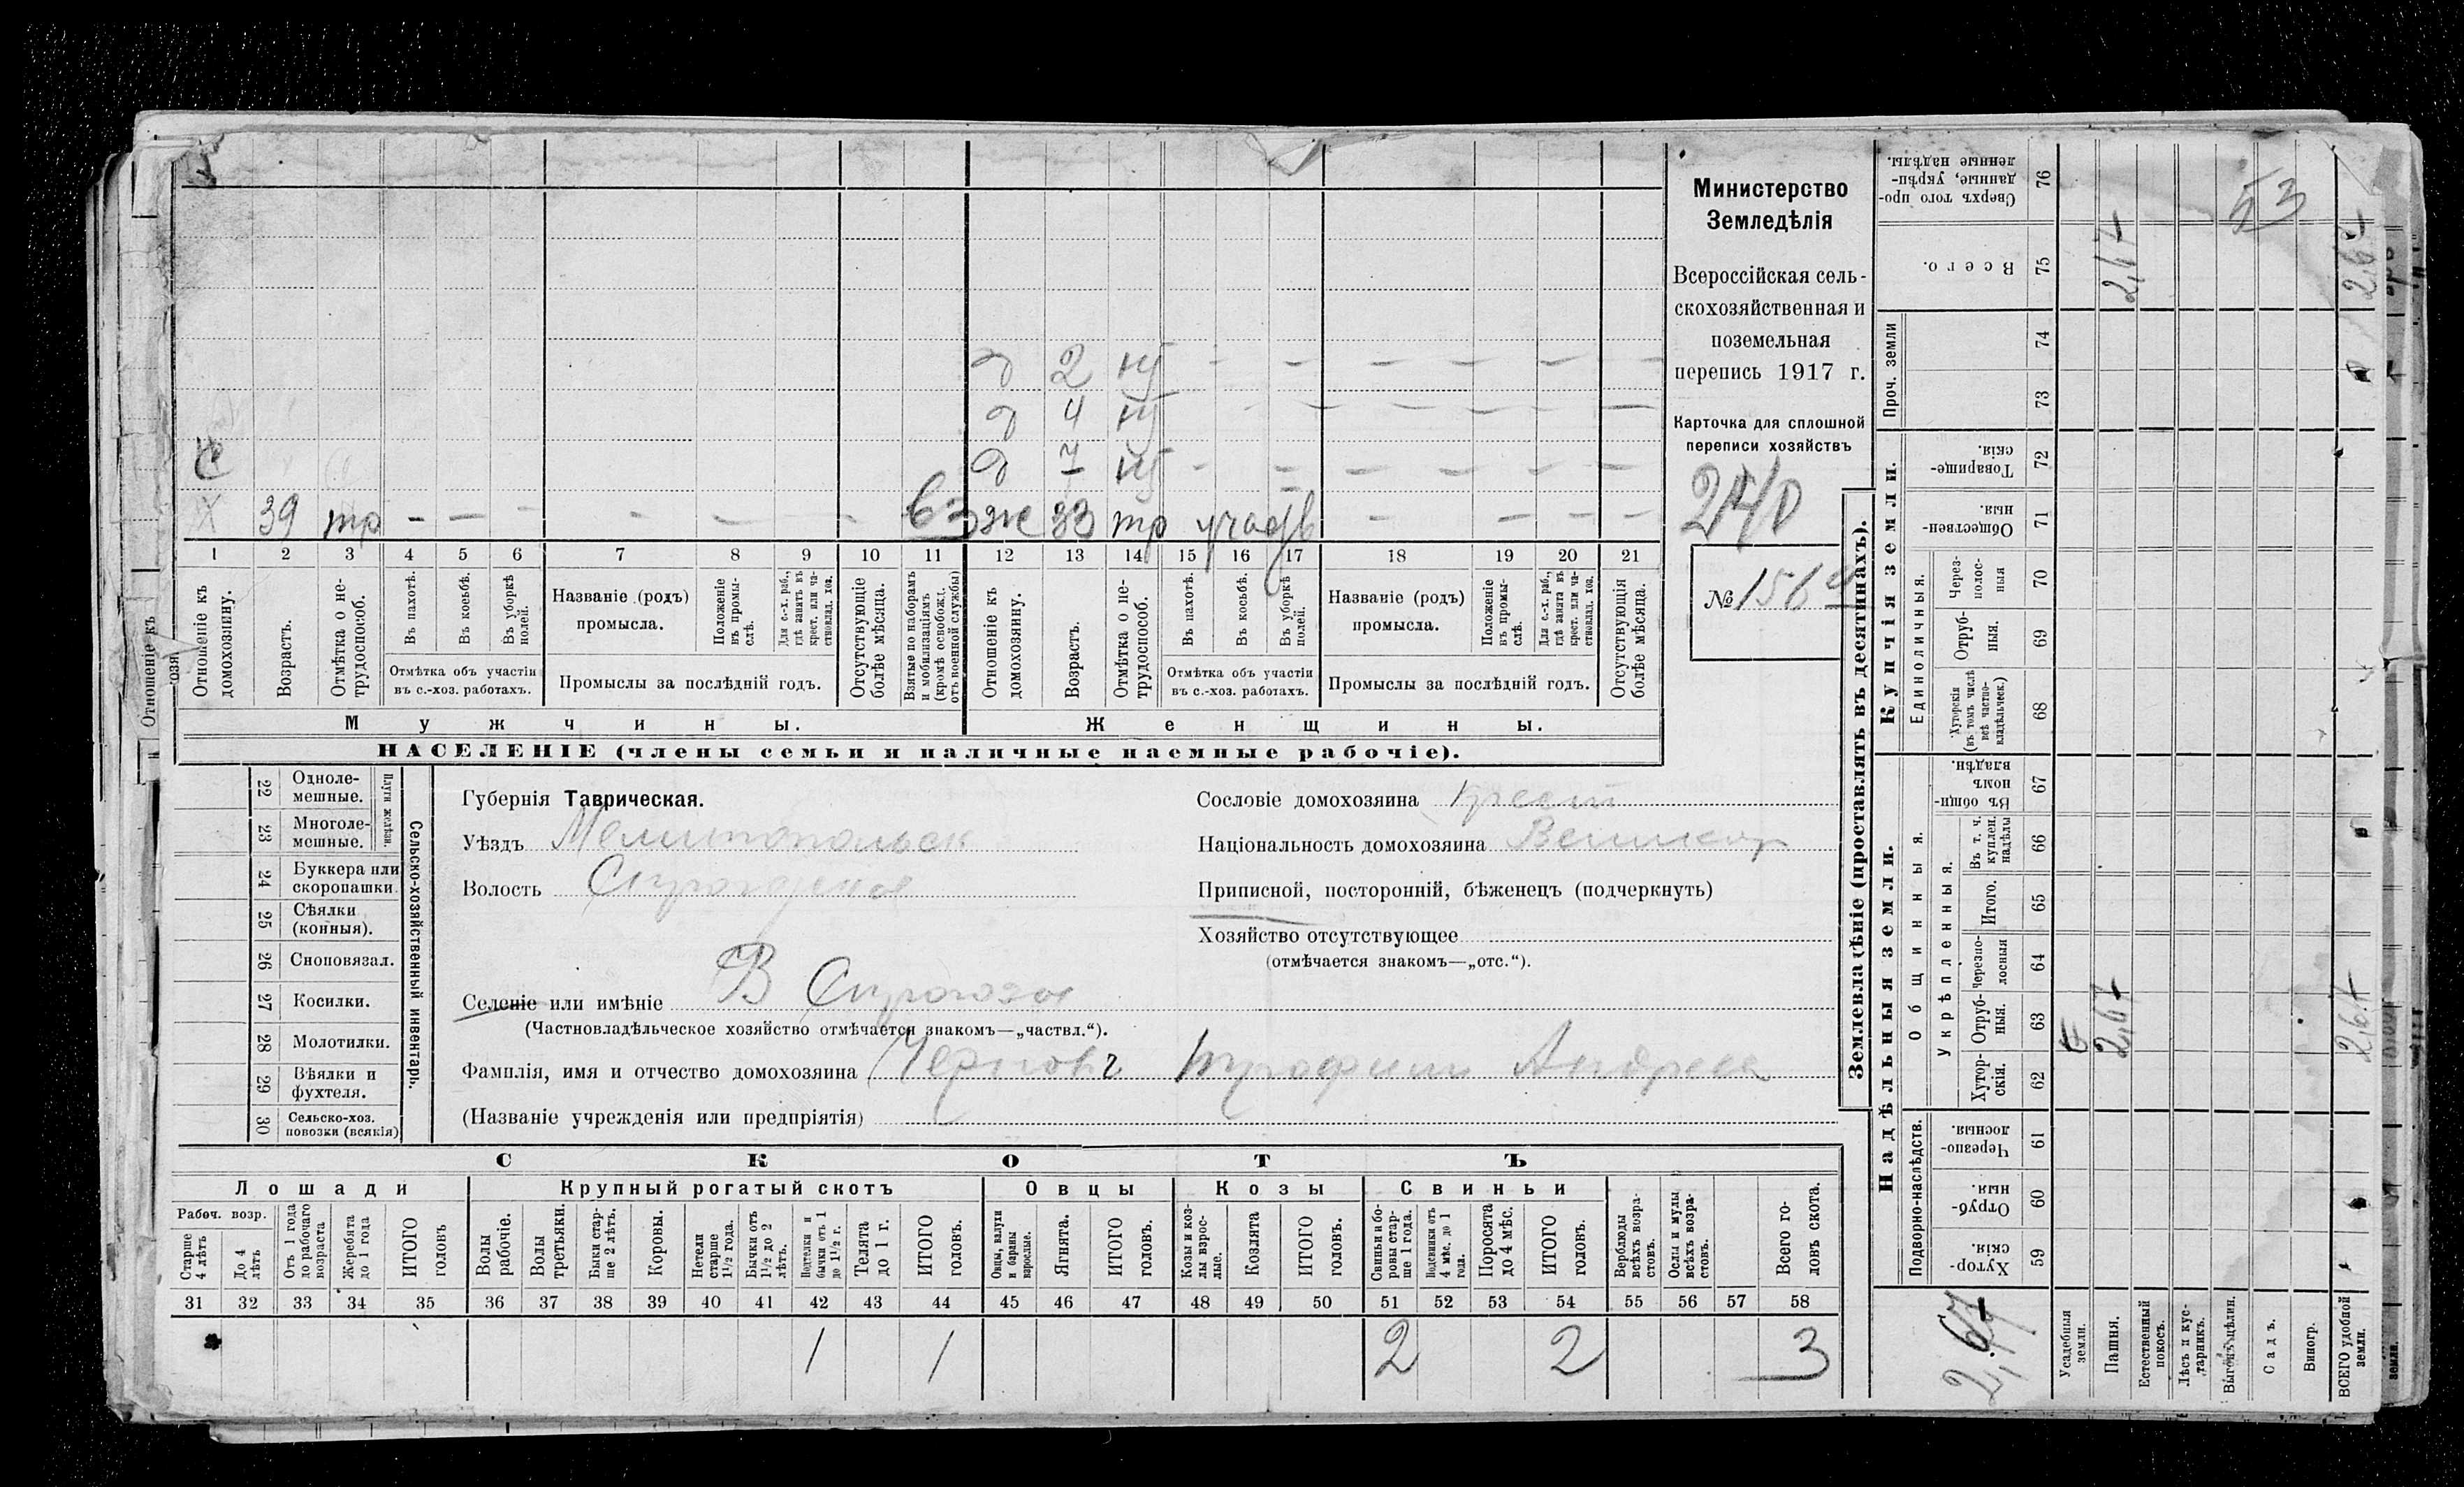 Министерство
Земледѣлія
Всероссійская сель-
скохозяйственная и
поземельная
перепись 1917 г.
Карточка для сплошной
переписи хозяйствъ
240
№ 156
д 2 - - - - - -
д 4 - - - - - -
д 7 - - - - - -
Х 39 тр - - - - - - - вз ж 33 тр - - - -
1 2 3 4 5 6 7 8 9 10 11 12 13 14 15 16 17 18 19 20 21
Отношеніе къ домохозяину.
Возрастъ.
Отмѣтка о не-трудоспособ.
Въ пахотѣ.
Въ косьбѣ.
Въ уборкѣ полей.
Отмѣтка объ участіи
въ с.-хоз. работахъ.
Названіе (родъ)
промысла.
Положеніе въ промы-слѣ.
Для с.-х. раб., гдѣ занятъ въ крест. или ча-стновлад. хоз.
Промыслы за послѣдній годъ.
Отсутствующіе болѣе мѣсяца.
Взятые по наборамъ и мобилизаціямъ (кромѣ освобожд. отъ военной службы)
Отношеніе къ домохозяину.
Возрастъ.
Отмѣтка о не-трудоспособ.
Въ пахотѣ.
Въ косьбѣ.
Въ уборкѣ полей.
Отмѣтка объ участіи
въ с.-хоз. работахъ.
Названіе (родъ)
промысла.
Положеніе въ промы-слѣ.
Для с.-х. раб., гдѣ занята въ крест. или ча-стновлад. хоз.
Промыслы за послѣдній годъ.
Отсутствующія болѣе мѣсяца.
Мужчины. Женщины.
НАСЕЛЕНІЕ (члены семьи и наличные наемные рабочіе).
Отношеніе къ
Сельско-хозяйственный инвентарь.
Плуги желѣзн.
22 Одноле-мешные.
23 Многоле-мешные.
24 Буккера или скоропашки.
25 Сѣялки (конныя).
26 Сноповязал.
27 Косилки.
28 Молотилки.
29 Вѣялки и фухтеля.
30 Сельско-хоз. повозки (всякія)
Губернія Таврическая.
Уѣздъ Мелитопольск
Волость
Селеніе или имѣніе В Серогозы
(Частновладѣльческое хозяйство отмѣчается знакомъ—„частвл.“).
Фамилія, имя и отчество домохозяина Черновъ Трофим Андреев
(Названіе учрежденія или предпріятія)
Сословіе домохозяина крест
Національность домохозяина Великор
Приписной, посторонній, бѣженецъ (подчеркнуть)
Хозяйство отсутствующее
(отмѣчается знакомъ—„отс.“).
СКОТЪ
Лошади Крупный рогатый скотъ Овцы Козы Свиньи
Рабоч. возр.
Старше 4 лѣтъ
До 4 лѣтъ
Отъ 1 года до рабочаго возраста
Жеребята до 1 года
ИТОГО головъ
Волы рабочіе.
Волы третьяки.
Быки стар-ше 2 лѣтъ.
Коровы.
Нетели старше 1½ года.
Бычки отъ 1½ до 2 лѣтъ.
Подтелки и бычки отъ 1 до 1½ г.
Телята до 1 г.
ИТОГО головъ.
Овцы, валухи и бараны взрослые.
Ягнята.
ИТОГО головъ.
Козы и коз-лы взрос-лые.
Козлята
ИТОГО головъ.
Свиньи и бо-ровы стар-ше 1 года.
Подсвинки отъ 4 мѣс. до 1 года.
Поросята до 4 мѣс.
ИТОГО головъ.
Верблюды всѣхъ возра-стовъ.
Ослы и мулы всѣхъ возра-стовъ.
Всего го-ловъ скота.
31 32 33 34 35 36 37 38 39 40 41 42 43 44 45 46 47 48 49 50 51 52 53 54 55 56 57 58
1 1 2 2 3
Землевладѣніе (проставлять въ десятинахъ).
Надѣльныя земли. Купчія земли. Проч. земли
Подворно-наслѣдств.
Общинныя.
Укрѣпленныя.
Единоличныя.
Хутор-скія. 59
Отруб-ныя. 60
Черезпо-лосныя. 61
Хутор-скія. 62
Отруб-ныя. 63
Черезпо-лосныя 64
Итого. 65
Въ т. ч. куплен. надѣлы 66
Въ общин-номъ владѣн. 67
Хуторскія (въ томъ числѣ всѣ частно-владѣльческ.) 68
Отруб-ныя. 69
Через-полос-ныя 70
Обществен-ныя. 71
Товарище-скія. 72
73
74
Всего. 75
Сверхъ того про-данные, укрѣп-ленные надѣлы. 76
Усадебныя земли.
Пашня. 2,67 2,67
Естественный покосъ.
Лѣсъ и кус-тарникъ.
Выгонъ цѣлин.
Садъ.
Виногр.
ВСЕГО удобной земли. 2,67 2,67
2,67
53